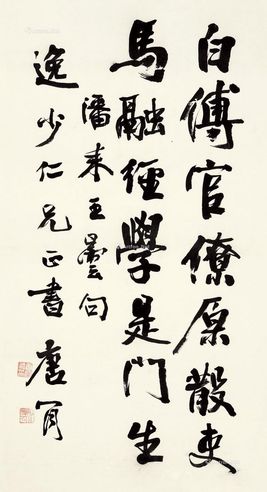 白傅官僚原散吏
馬融經學是門生
潘耒王曇句
逸少仁兄正書 唐肯